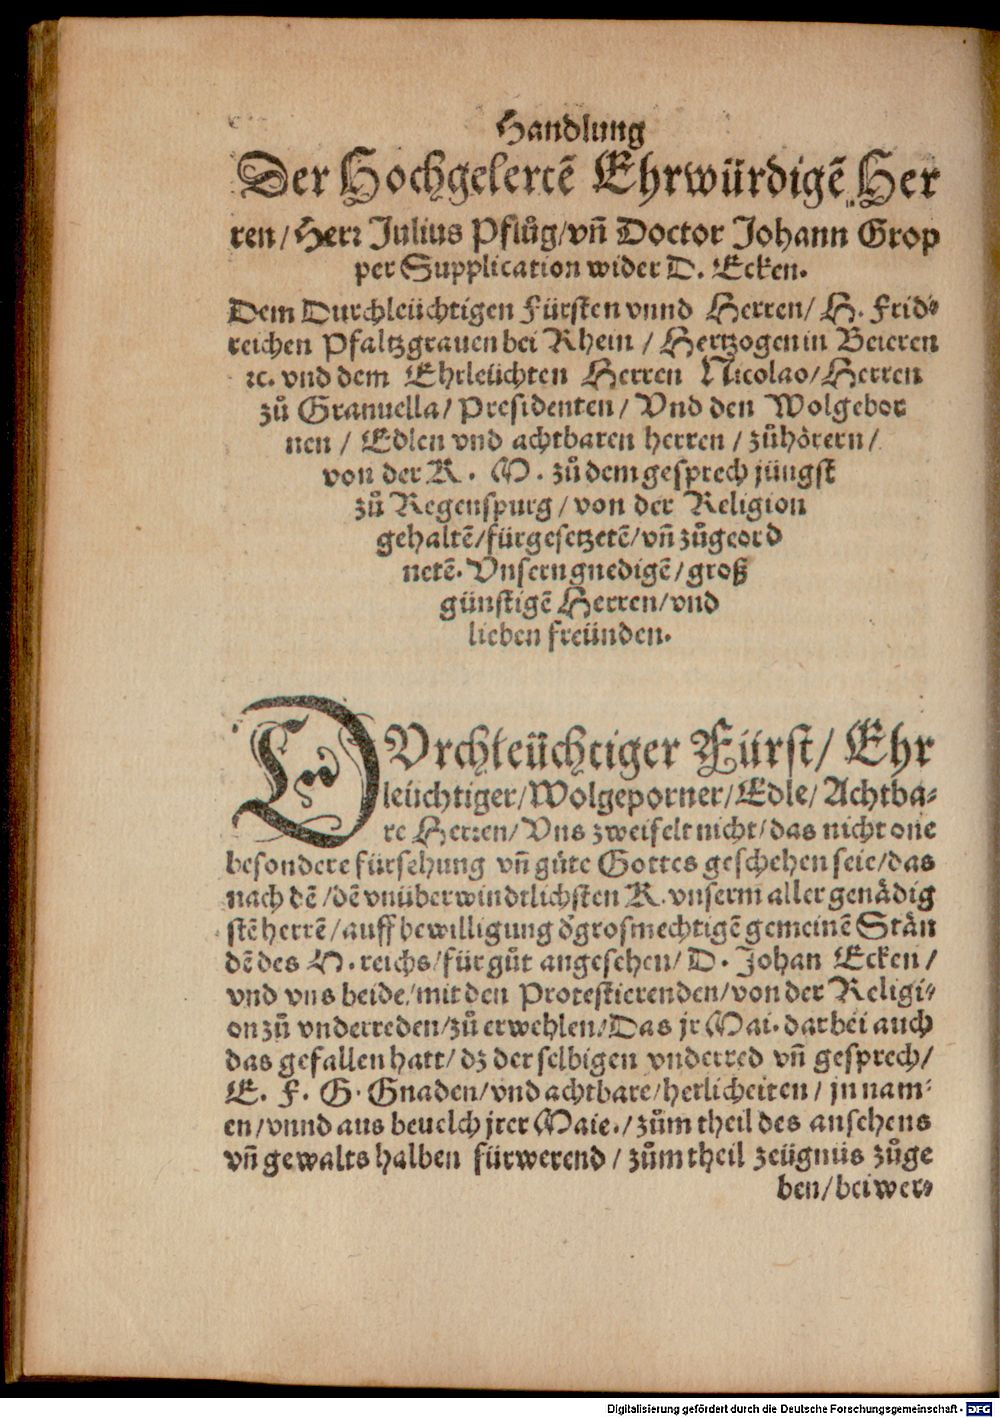 Handlung
Der Hochgelertẽ Ehrwürdigẽ Her
ren / Herr Julius Pflůg / vñ Doctor Johann Grop
per Supplication wider D. Ecken.
Dem Durchleüchtigen Fürsten vnnd Herren / H. Frid⸗
reichen Pfaltzgrauen bei Rhein / Hertzogen in Beieren
ꝛc. vnd dem Ehrleüchten Herren Nicolao / Herren
zů Granuella / Presidenten / Vnd den Wolgebor
nen / Edlen vnd achtbaren herren / zůhörern /
von der K. M. zů dem gesprech jüngst
zů Regenspurg / von der Religion
gehaltẽ / fürgesetzetẽ / vñ zůgeord
netẽ. Vnsern gnedigẽ / groß
günstigẽ Herren / vnd
lieben freünden.
DVrchleüchtiger Fürst / Ehr
leüchtiger / Wolgeporner / Edle / Achtba⸗
re Herren / Vns zweifelt nicht / das nicht one
besondere fürsehung vñ güte Gottes geschehen seie / das
nach dẽ / dẽ vnüberwindtlichsten K. vnserm aller genädig
stẽ herrẽ / auff bewilligung d̕ grosmechtigẽ gemeinẽ Stän
dẽ des H. reichs / für gůt angesehen / D. Johan Ecken /
vnd vns beide / mit den Protestierenden / von der Religi⸗
on zů vnderreden / zů erwehlen / Das jr Mai. darbei auch
das gefallen hatt / dz der selbigen vnderred vñ gesprech /
E. F. G. Gnaden / vnd achtbare / herlicheiten / jn nam⸗
en / vnnd aus beuelch jrer Maie. / zům theil des ansehens
vñ gewalts halben fürwerend / zům theil zeügnüs zůge
ben / bei wer⸗
Digitalisierung gefördert durch die Deutsche Forschungsgemeinschaft - DFG